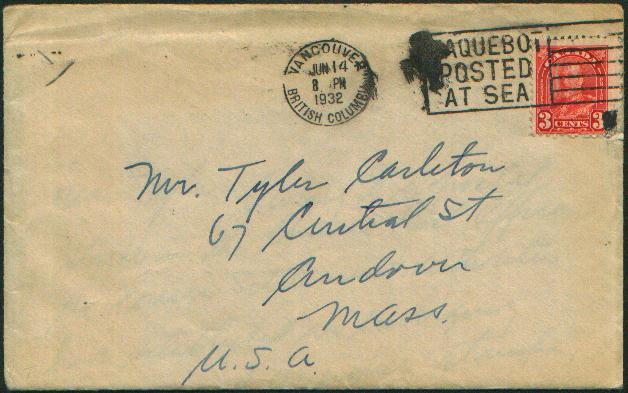 VANCOUVER
JUN 14
8 PM
1932
BRITISH COLUMBIA
AQUEBOT
POSTED
AT SEA
3 CENTS 3
Mr. Tyler Carleton
67 Central St
Andover
Mass.
U.S.A.